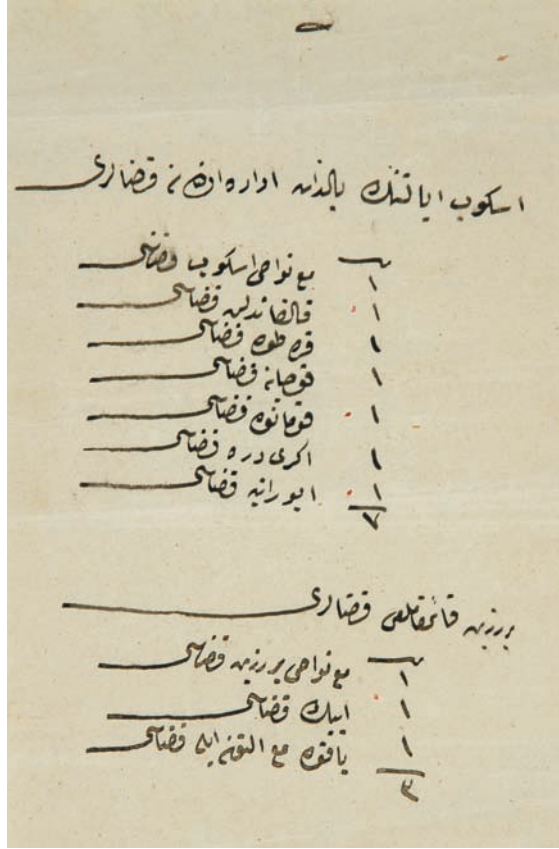 اسكوب ايالتنك بالذات اداره اولنان قضالرى
١ مع نواحى اسكوب قضاسى
١ قالقاندلن قضاسى
١ قره طوه قضاسى
١ قوچانه قضاسى
١ قومانوه قضاسى
١ اكرى دره قضاسى
١ ايورانيه قضاسى
٧
پرزرين قائمقاملغى قضالرى
١ مع نواحى پرزرين قضاسى
١ ايپك قضاسى
١ ياقوه مع التون ايلى قضاسى
٣